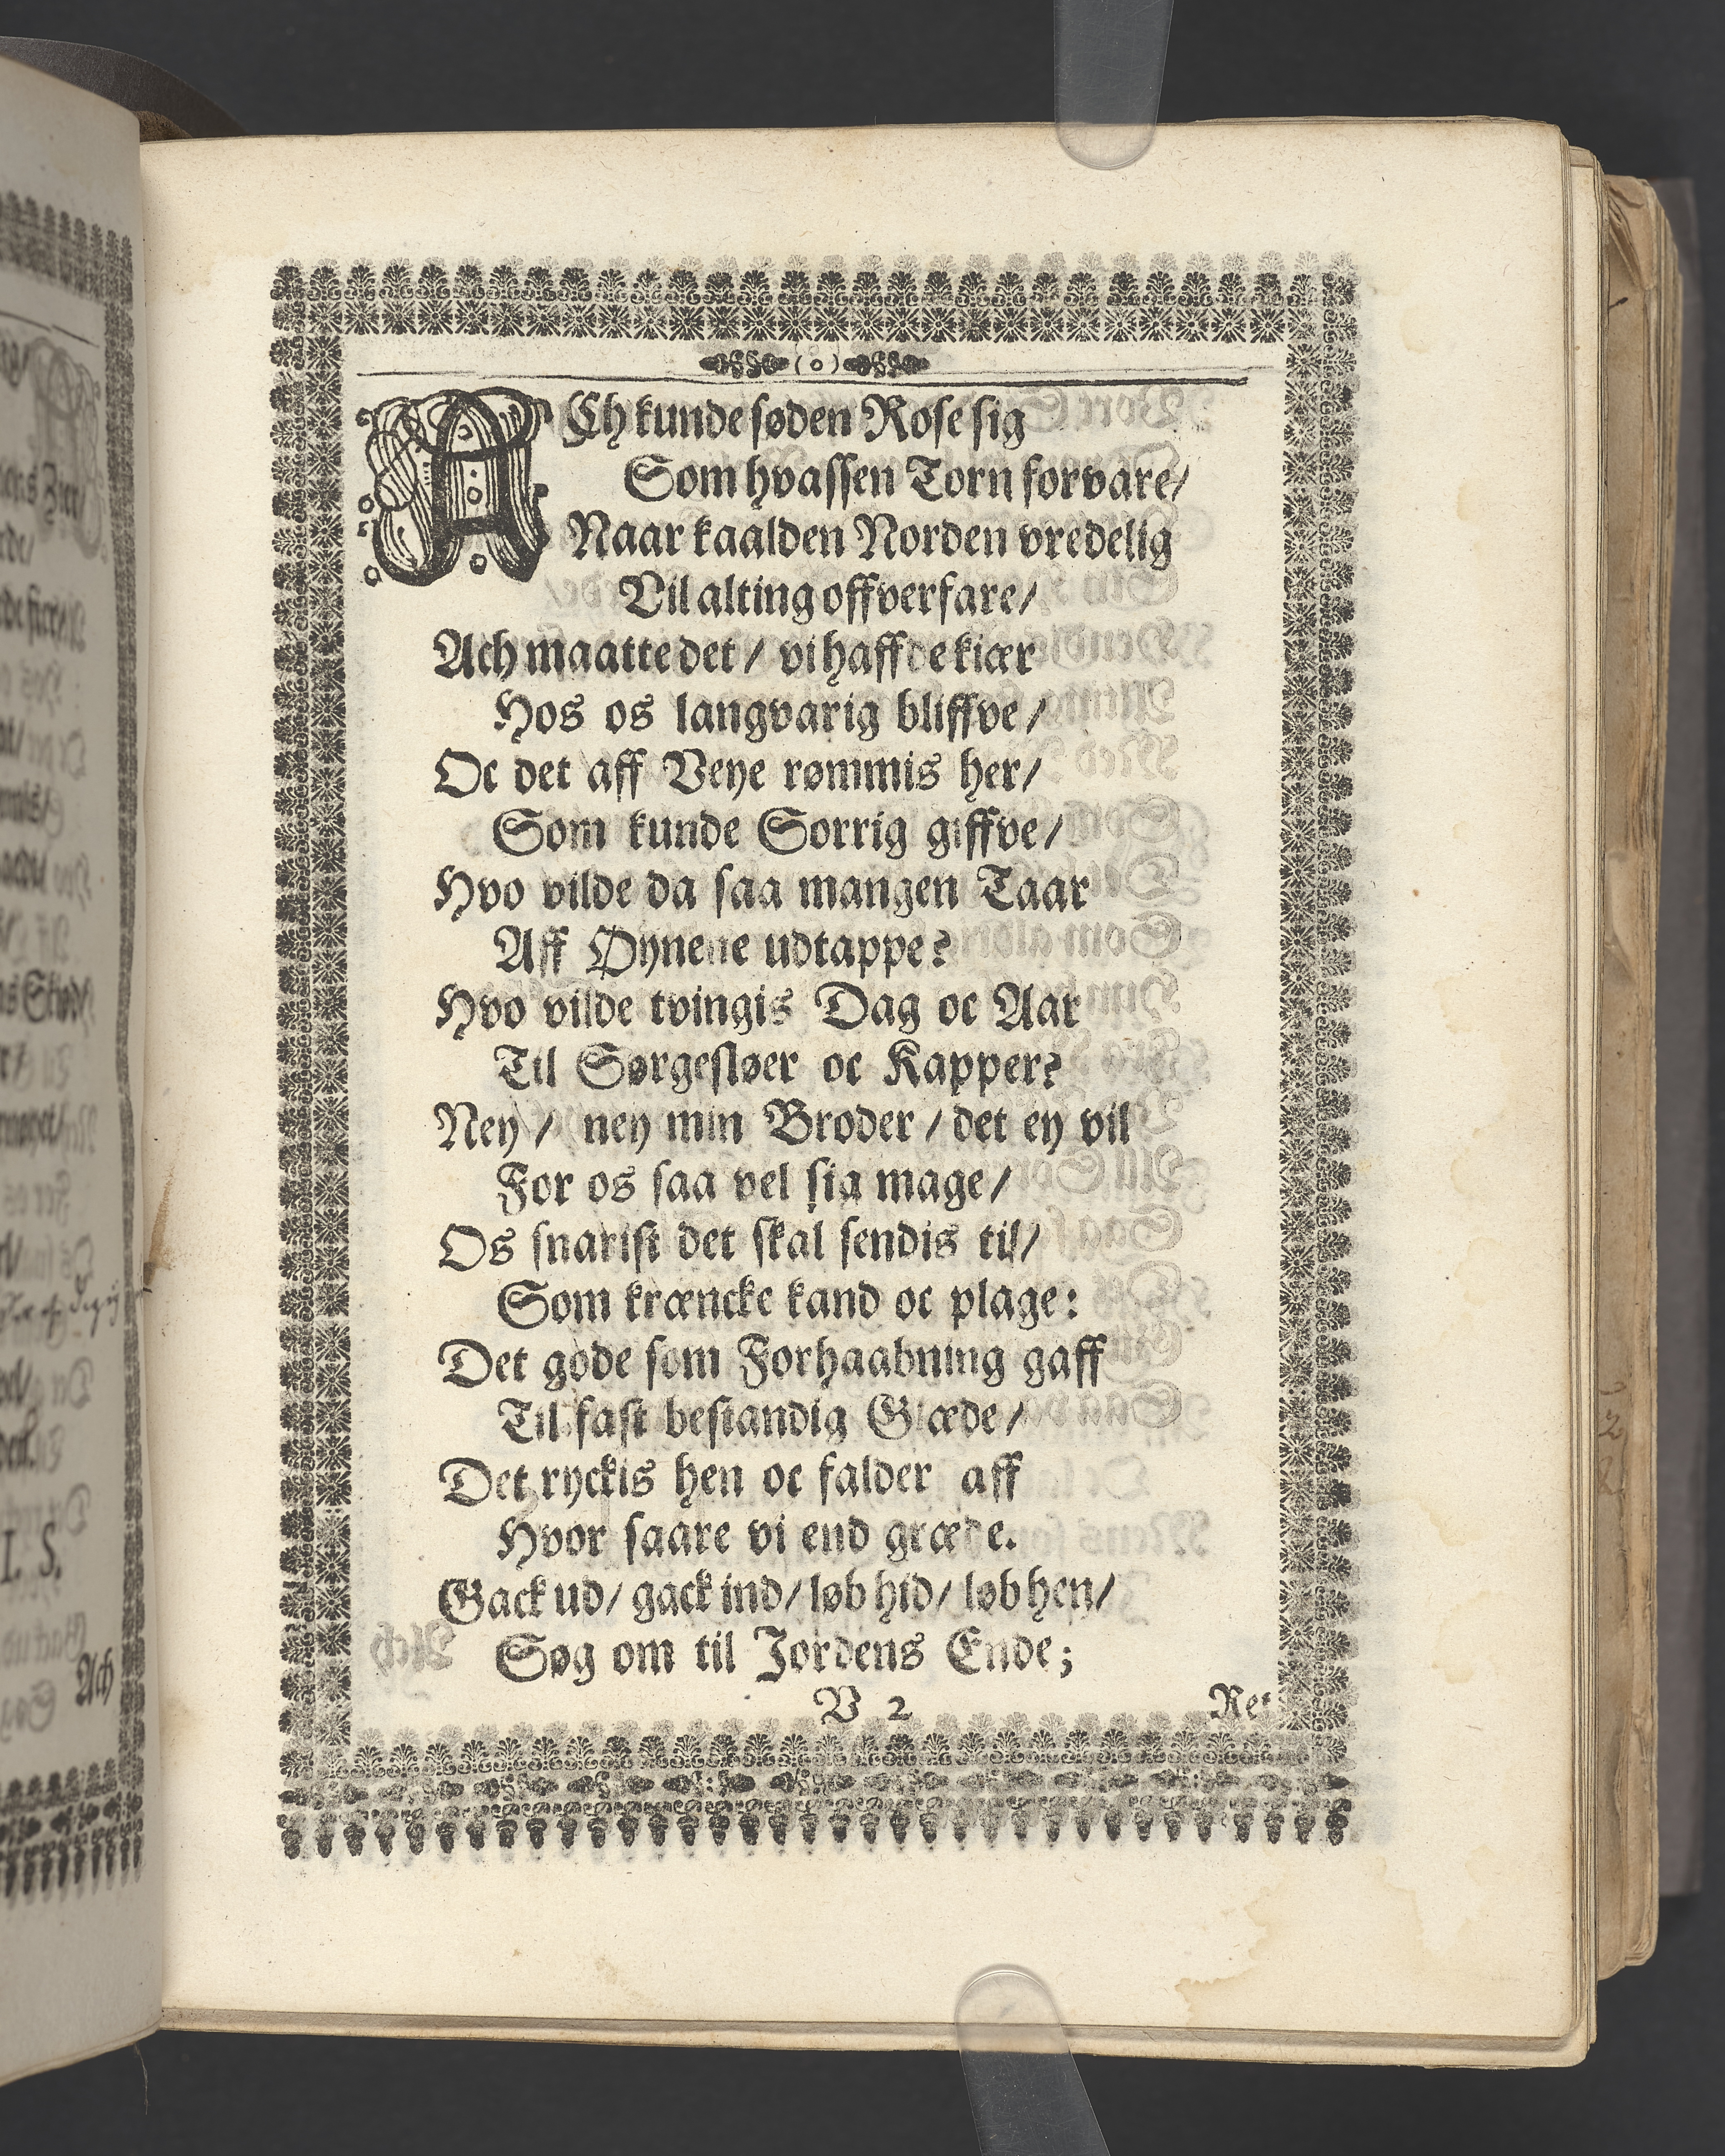 ACh kunde søden Rose sig
Som hvassen Torn forvare/
Naar kaalden Norden vredelig
Vil alting offverfare/
Ach maatte det/ vi haffde kiær
Hos os langvarig bliffve/
Oc det aff Veye rømmis her/
Som kunde Sorrig giffve/
Hvo vilde da saa mangen Taar
Aff Øynene udtappe?
Hvo vilde tvingis Dag oc Aar
Til Sørgesløer oc Kapper?
Ney/ ney min Broder/ det ey vil
For os saa vel sig mage/
Os snarist det skal sendis til/
Som kræncke kand oc plage:
Det gode som Forhaabning gaff
Til fast bestandig Glæde/
Det ryckis hen oc falder aff
Hvor saare vi end græde.
Gack ud/ gack ind/ løb hid/ løb hen/
Søg om til Jordens Ende;
V 2
Ret
I. S.
Ach